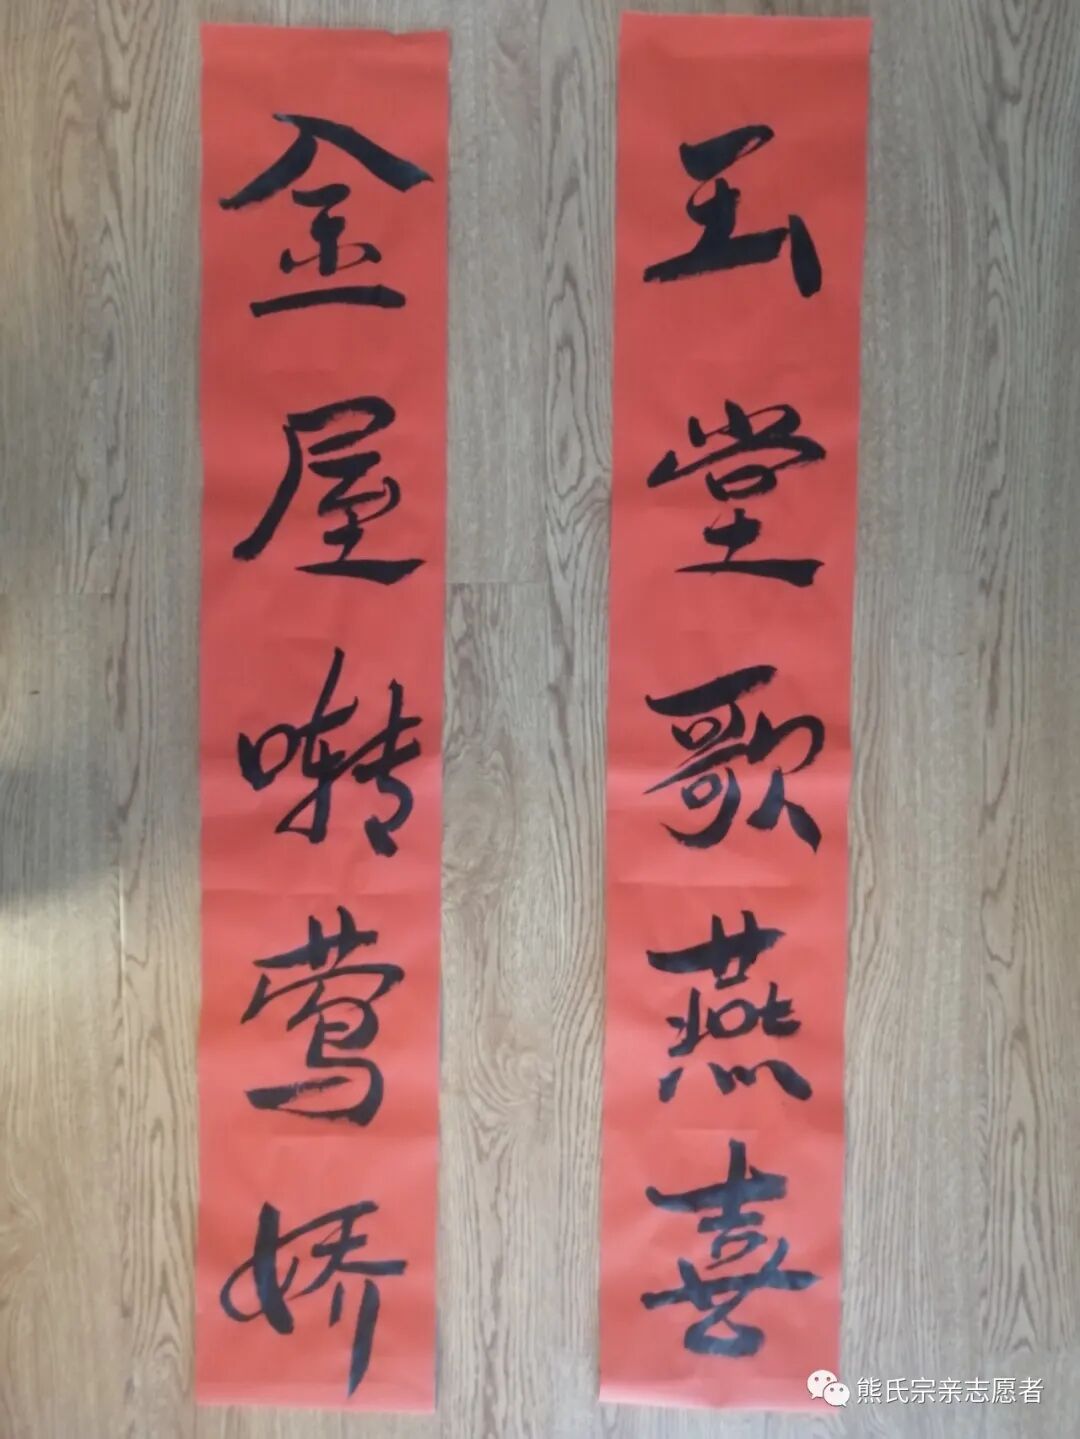 玉堂歌燕喜
金屋啭莺娇
熊氏宗亲志愿者